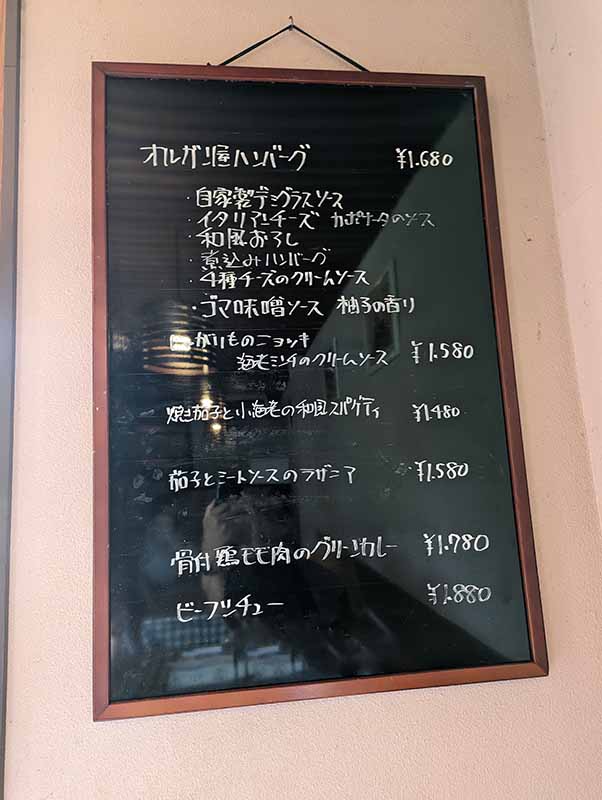 オルガン屋ハンバーグ ¥1.680
・自家製デミグラスソース
・イタリアンチーズ カポナータのソース
・和風おろし
・煮込みハンバーグ
・4種チーズのクリームソース
・ゴマ味噌ソース 柚子の香り
じゃがいものニョッキ
海老ミンチのクリームソース ¥1.580
焼き茄子と小海老の和風スパゲティ ¥1.480
茄子とミートソースのラザニア ¥1.580
骨付鶏モモ肉のグリーンカレー ¥1.780
ビーフシチュー ¥1.880